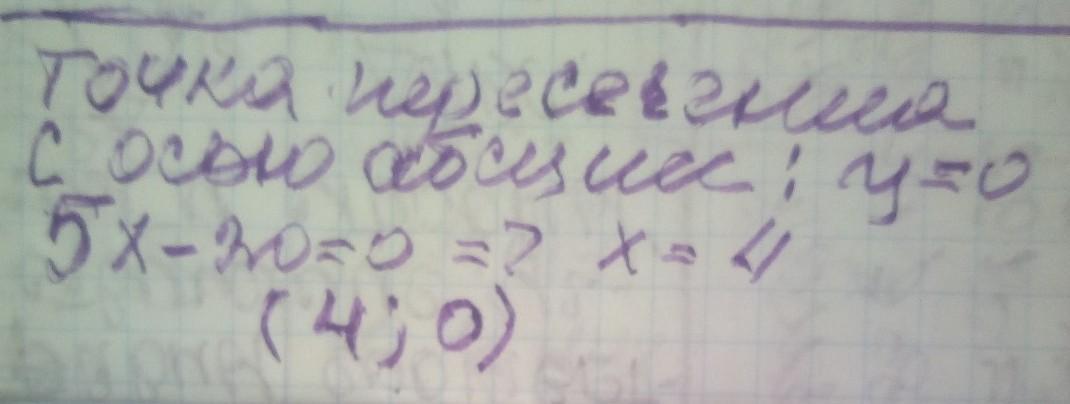 Точка пересечения
с осью абсцисс: y=0
5x-20=0 => x=4
(4;0)